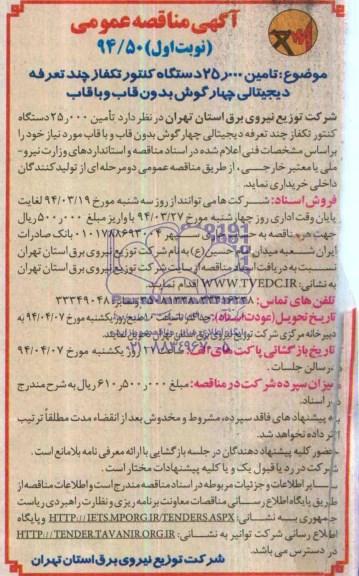 آگهی مناقصه عمومی
(نوبت اول) ۹۴/۵۰
موضوع: تامین ۲۵٫۰۰۰ دستگاه کنتور تکفاز چند تعرفه
دیجیتالی چهار گوش بدون قاب و با قاب
شرکت توزیع نیروی برق استان تهران در نظر دارد تأمین ۲۵٫۰۰۰ دستگاه
کنتور تکفاز چند تعرفه دیجیتالی چهار گوش بدون قاب و با قاب مورد نیاز خود را
براساس مشخصات فنی اعلام شده در اسناد مناقصه و استانداردهای وزارت نیرو-
ملی یا معتبر خارجی، از طریق مناقصه عمومی دو مرحله ای از تولیدکنندگان
داخلی خریداری نماید.
فروش اسناد: شرکت ها می توانند از روز سه شنبه مورخ ۹۴/۰۳/۱۹ لغایت
پایان وقت اداری روز چهارشنبه مورخ ۹۴/۰۳/۲۷ با واریز مبلغ ۵۰۰٫۰۰۰ ریال
جهت هر مناقصه به حساب ۰۱۰۱۷۸۸۶۹۳۰۰۴ بانک صادرات
ایران شعبه میدان (ع) به نام شرکت توزیع نیروی برق استان تهران
نسبت به دریافت اسناد مناقصه از سایت شرکت توزیع نیروی برق استان تهران
به نشانی: WWW.TVEDC.IR اقدام نمایند.
تلفن های تماس: ۳۳۳۴۹۰۴۸
تاریخ تحویل (عودت) اسناد: حداکثر تا ساعت صبح روز یکشنبه مورخ ۹۴/۰۴/۰۷ به
دبیرخانه مرکزی شرکت توزیع نیروی برق استان تهران
تاریخ بازگشائی پاکت های روز یکشنبه مورخ ۹۴/۰۴/۰۷
سالن جلسات.
میزان سپرده شرکت در مناقصه: مبلغ ۶۱۰٫۵۰۰٫۰۰۰ ریال به شرح مندرج
در اسناد.
به پیشنهاد های فاقد سپرده، مشروط و مخدوش بعد از انقضاء مدت مطلقاً ترتیب
اثر داده نخواهد شد.
حضور کلیه پیشنهاد دهندگان در جلسه بازگشایی با ارائه معرفی نامه بلامانع است.
شرکت در رد یا قبول یک و یا کلیه پیشنهادات مختار است.
سایر اطلاعات و جزئیات مربوطه در اسناد مناقصه مندرج است و اطلاعات مناقصه از
طریق پایگاه اطلاع رسانی مناقصات معاونت برنامه ریزی و نظارت راهبردی ریاست
جمهوری به نشانی: HTTP://IETS.MPORG.IR/TENDERS.ASPX و پایگاه
اطلاع رسانی شرکت توانیر به نشانی: HTTP://TENDER.TAVANIR.ORG.IR
در دسترس می باشد.
شرکت توزیع نیروی برق استان تهران